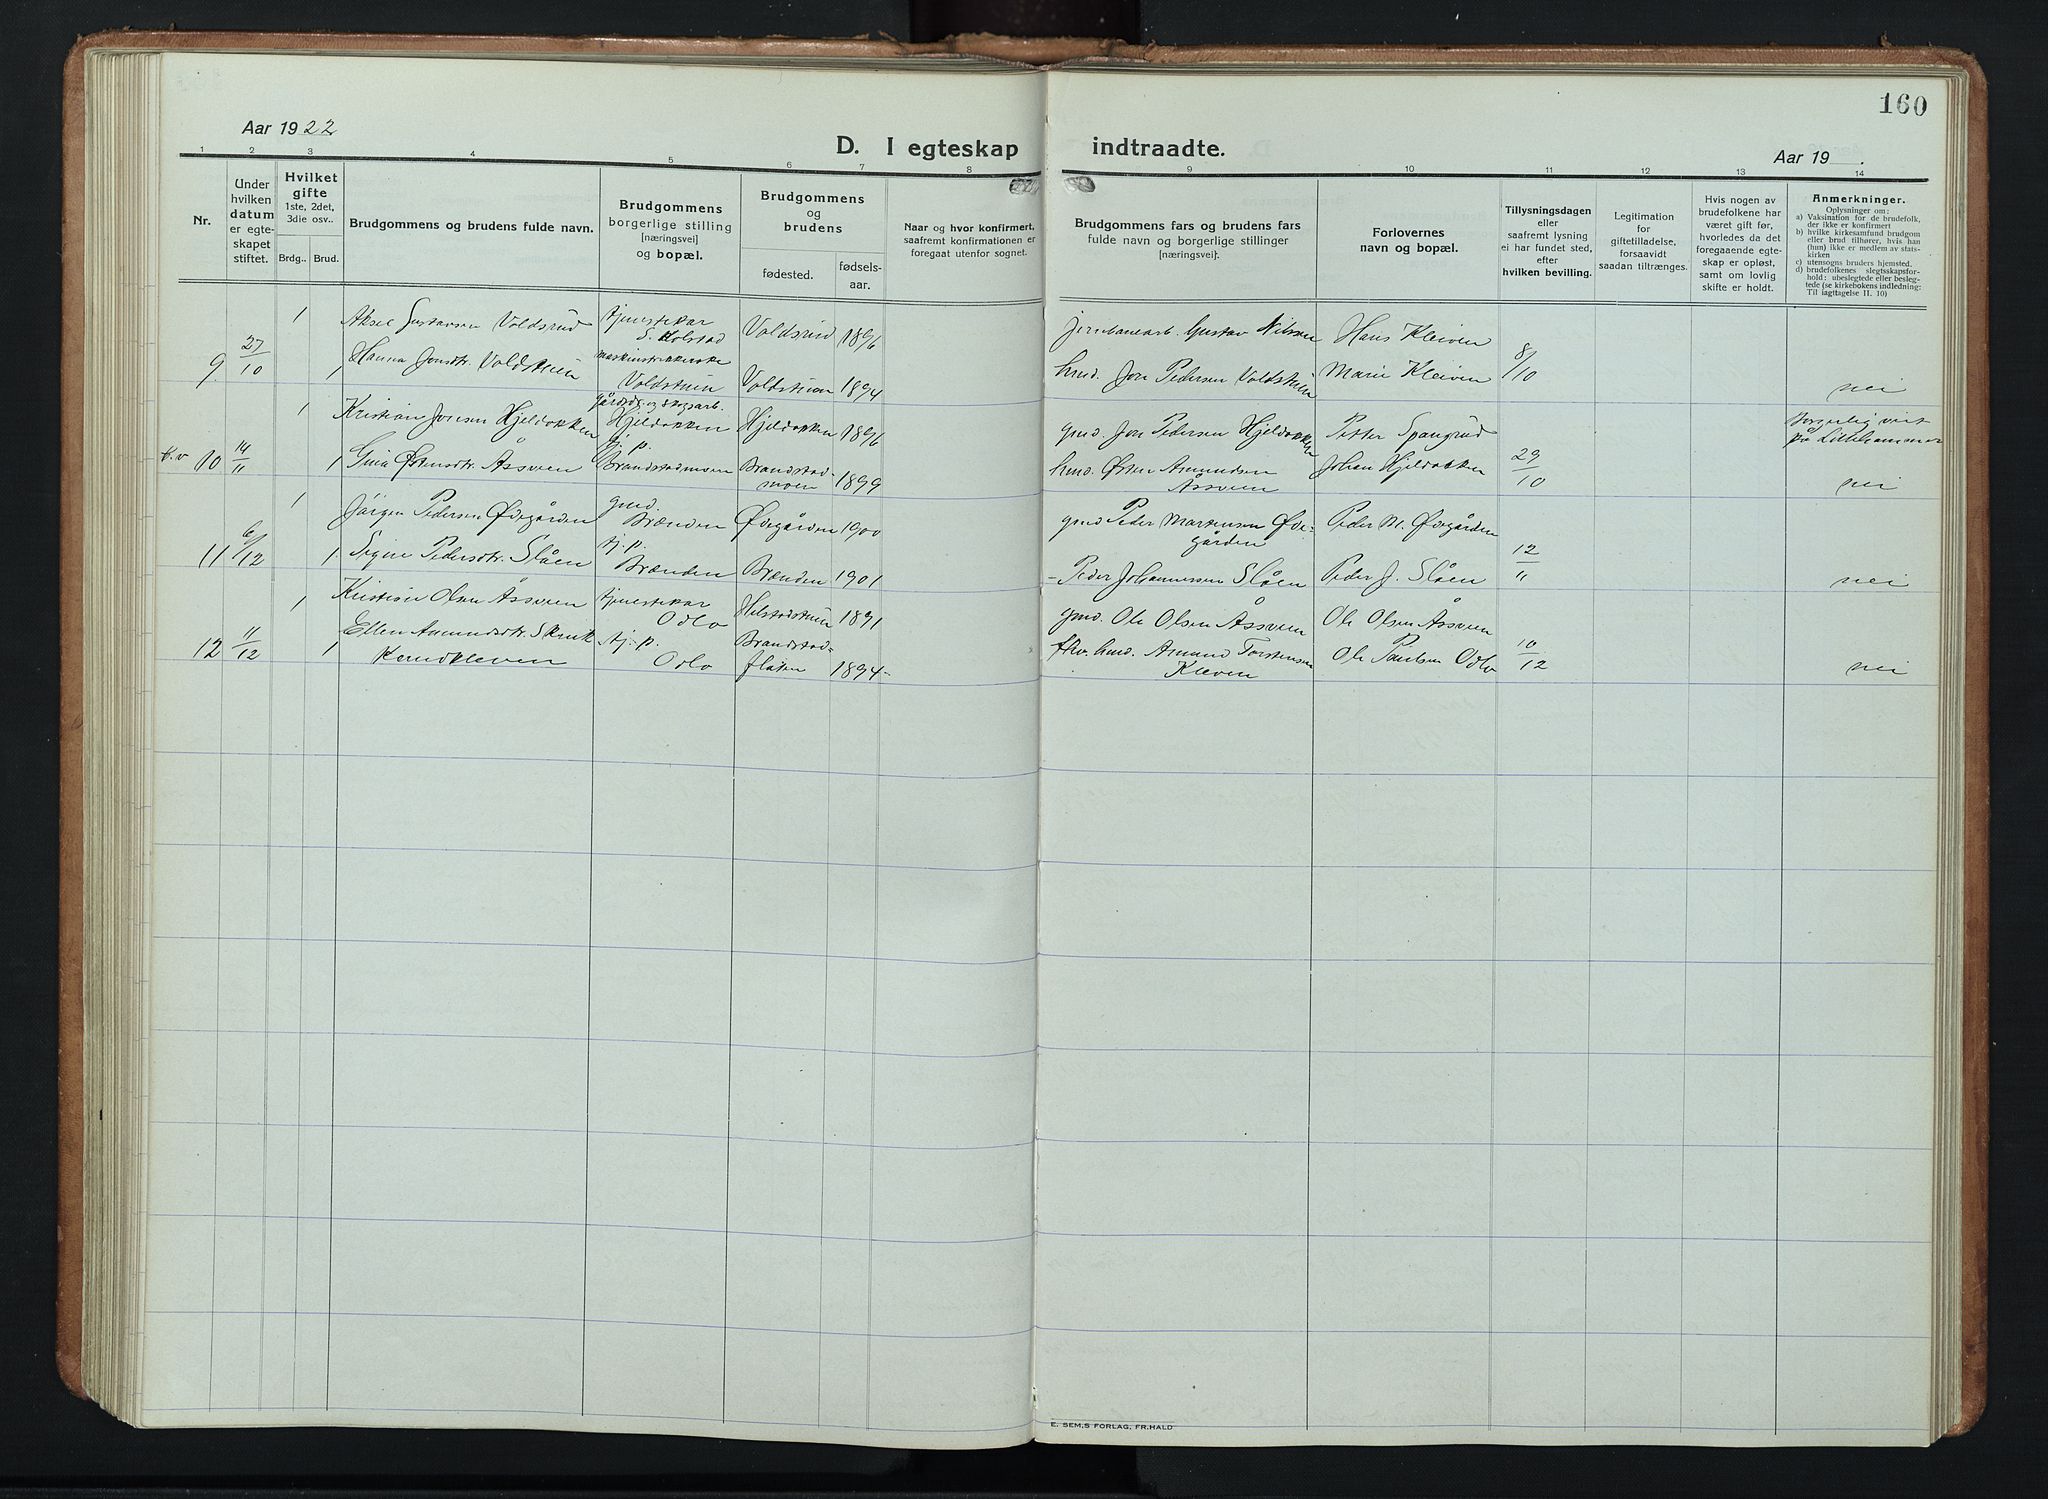 160
Aar 1922
D. I egteskap indtraadte.
Aar 19 .
1 2 3 4 5 6 7 8 9 10 11 12 13 14
Nr.
Under
hvilken
datum
er egte-
skapet
stiftet.
Hvilket
gifte
1ste, 2det,
3die osv..
Brdg.. Brud.
Brudgommens og brudens fulde navn.
Brudgommens
borgerlige stilling
[næringsvei]
og bopæl.
Brudgommens
og
brudens
fødested.
fødsels-
aar.
Naar og hvor konfirmert,
saafremt konfirmationen er
foregaat utenfor sognet.
Brudgommens fars og brudens fars
fulde navn og borgerlige stillinger
[næringsvei].
Forlovernes
navn og bopæl.
Tillysningsdagen
eller
saafremt lysning
ei har fundet sted,
efter
hvilken bevilling.
Legitimation
for
giftetilladelse,
forsaavidt
saadan tiltrænges.
Hvis nogen av
brudefolkene har
været gift før,
hvorledes da det
foregaaende egte-
skap er opløst,
samt om lovlig
skifte er holdt.
Anmerkninger.
Oplysninger om:
a) Vaksination for de brudefolk,
der ikke er konfirmert
b) hvilke kirkesamfund brudgom
eller brud tilhører, hvis han
(hun) ikke er medlem av stats-
kirken
c) utensogns bruders hjemsted.
d) brudefolkenes slegtsskapsfor-
hold: ubeslegtede eller besleg-
tede (se kirkebokens indledning:
Til iagttagelse II. 10)
1 Aksel Gustavsen Voldsrud tjenestekar S. Kolstad Voldsrud 1896 jernbanearb. Gustav Nilsen Hans Kleiven
9. 27/10 1 Hanna Jonsdtr. Voldstuen Voldstuen Voldstuen 1894 hmd. Jon Pedersen Voldstuen Marie Kleiven 8/10 nei
1 Kristian Jonsen Hjeldokken gårdsdr. og skogsarb. Hjeldokken Hjeldokken 1896 gmd. Jon Pedersen Hjeldokken Petter Spangrud Borgerlig viet på Lillehammer
b.v 10 14/11 1 Gina Østensdtr. Åssveen tj. p. Brandstadmoen Brandstad-moen 1899 hmd. Østen Amundsen Åssveen Johan Hjeldokken 29/10 nei
1 Jörgen Pedersen Ødegården gmd. Brænden Ødegården 1900 gmd Peder Martensen Øde-gården Peder M. Ødegården
11 6/12 1. Signe Pedersdtr. Slåen tj. p. Brænden Brænden 1901 - Peder Johannessen Slåen Peder J. Slåen 12/11 nei
1 Kristian Olsen Åssveen tjenestekar Odlo Helstadstuen 1891 gmd. Ole Olsen Åssveen Ole Olsen Åssveen
12 11/12 1 Ellen Amundsdtr. Skruk-kerudkleven tj. p. Odlo Brandstad-flaten 1894- fhv. hmd. Amund Torstensen Kleven Ole Paulsen Odlo 10/12 nei
E. SEM,S FORLAG, FR.HALD